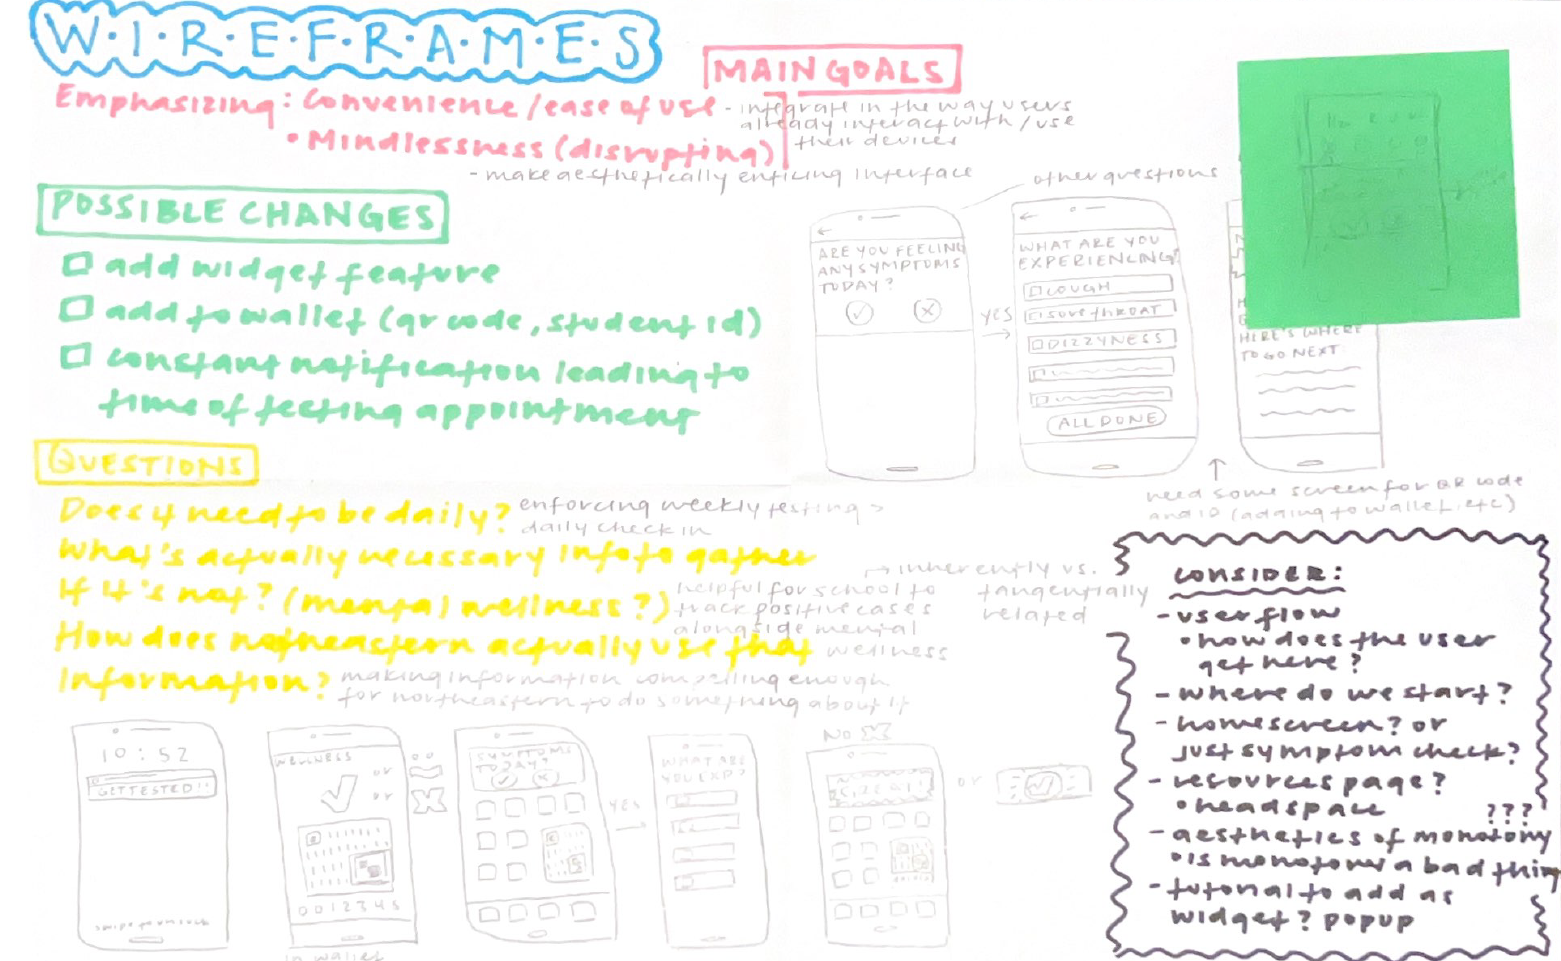 W·I·R·E·F·R·A·M·E·S
MAIN GOALS
Emphasizing: Convenience/ease of use - integrate in the way users
already interact with/use
their devices
• Mindlessness (disrupting)
- make aesthetically enticing interface
POSSIBLE CHANGES
add widget feature
add to wallet (qr code, student id)
constant notification leading to
time of testing appointment
QUESTIONS
Does it need to be daily? enforcing weekly testing >
daily check in
What's actually necessary info to gather
If it's not? (mental wellness?) helpful for school to
track positive cases
alongside mental
wellness
→ inherently vs.
tangentially
related
How does northeastern actually use that
Information? making information compelling enough
for northeastern to do something about it
other questions
←
ARE YOU FEELING
ANY SYMPTOMS
TODAY?
YES
←
WHAT ARE YOU
EXPERIENCING?
COUGH
SORE THROAT
DIZZYNESS
ALL DONE
HERE'S WHERE
TO GO NEXT
need some screen for QR code
and ID (adding to wallet, etc)
CONSIDER:
- user flow
• how does the user
get here?
- where do we start?
- homescreen? or
just symptom check?
- resources page?
• headspace ???
- aesthetics of monotony
• is monotony a bad thing
- tutorial to add as
widget? popup
10:52
GET TESTED!!
swipe to unlock
WELLNESS
or
or
0012345
in wallet
SYMPTOMS
TODAY?
YES
WHAT ARE
YOU EXP?
No
or